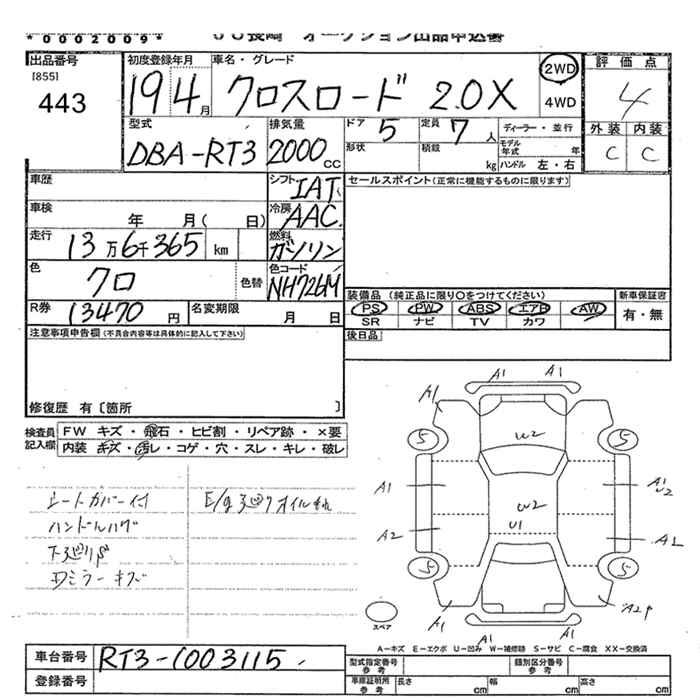 *0002009*
JU長崎 オークション出品申込書
出品番号 [855] 443
初度登録年月 19 4月
車名・グレード クロスロード 2.0X
2WD 4WD
評価点 4
外装 C 内装 C
型式 DBA-RT3
排気量 2000 CC
ドア 5 定員 7人
形状 積載 kg
ディーラー・並行
モデル年式 年
ハンドル 左・右
車歴
シフト IAT
セールスポイント(正常に機能するものに限ります)
車検 年 月( 日)
冷房 AAC
走行 13万6千365 km
燃料 ガソリン
色 クロ 色替
色コード NH726M
R券 13470 円
名変期限 月 日
装備品(純正品に限り○をつけてください)
新車保証書 有・無
PS PW ABS エアB AW
SR ナビ TV カワ
注意事項申告欄(不具合内容等は具体的に記入して下さい)
後日品
修復歴 有〔箇所 〕
検査員記入欄
FW キズ・飛石・ヒビ割・リペア跡・×要
内装 キズ・汚レ・コゲ・穴・スレ・キレ・破レ
シートカバー付
E/g廻りオイルもれ
ハンドルハゲ
下廻りサビ
ミラーキズ
A1 A1
A1
U2
5 5
A1
A1
U2
U2
U1
A2
A1
5 5
A1
A1
A1
A2P
スペア
A-キズ E-エクボ U-凹み W-補修跡 S-サビ C-腐食 XX-交換済
車台番号 RT3-1003115
登録番号
型式指定番号 参考
類別区分番号 参考
車庫証明所 参考
長さ cm 幅 cm 高さ cm